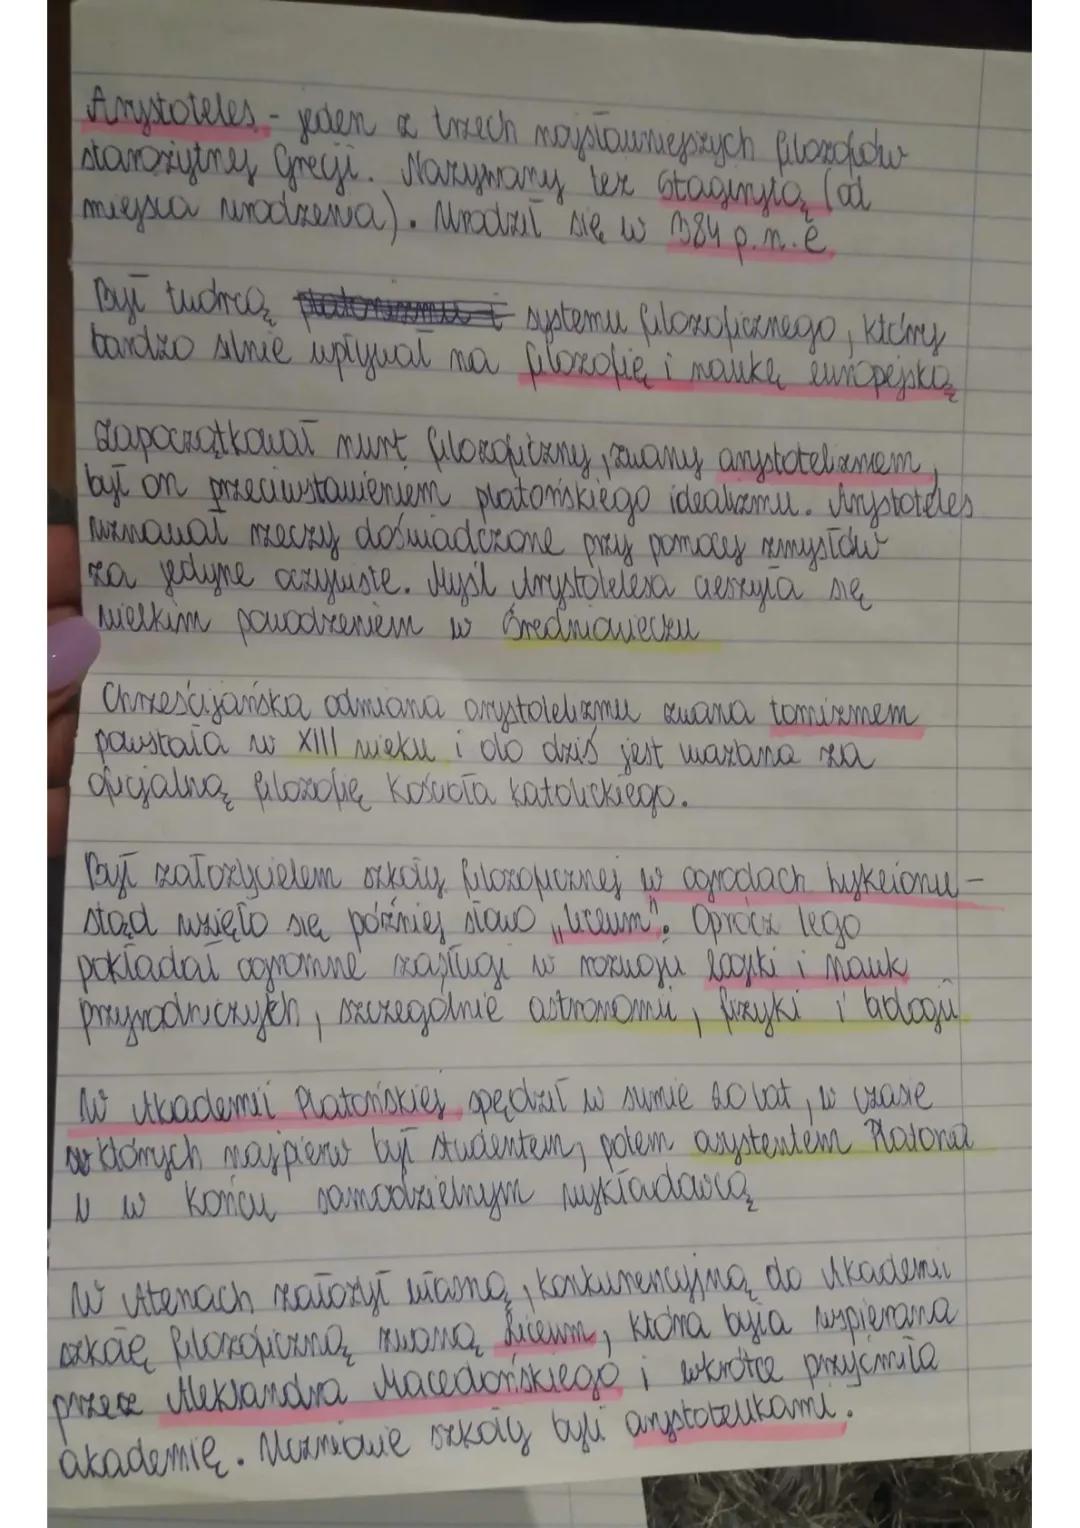 Arystoteles - jeden z trzech najsławniejszych filozofów
starożytnej Grecji. Nazywany też Stagirytą (od
miejsca urodzenia). Urodził się w 384 p.n.e.
Był twórcą platonizmu i systemu filozoficznego, który
bardzo silnie wpływał na filozofię i naukę europejską
Zapoczątkował nurt filozoficzny, zwany arystotelizmem,
był on przeciwstawieniem platońskiego idealizmu. Arystoteles
uznawał rzeczy doświadczone przy pomocy zmysłów
za jedyne oczywiste. Myśl Arystotelesa cieszyła się
wielkim powodzeniem w Średniowieczu
Chrześcijańska odmiana arystotelizmu zwana tomizmem
powstała w XIII wieku i do dziś jest uważana za
oficjalną filozofię Kościoła katolickiego.
Był założycielem szkoły filozoficznej w ogrodach Lykeionu -
stąd wzięło się później słowo „liceum". Oprócz tego
pokładał ogromne zasługi w rozwoju logiki i nauk
przyrodniczych, szczególnie astronomii, fizyki i biologii
W Akademii Platońskiej spędził w sumie 20 lat, w czasie
w których najpierw był studentem, potem asystentem Platona
w końcu samodzielnym wykładawcą
W Atenach założył własną, konkurencyjną do Akademii
szkołę filozoficzną zwaną Liceum, która była wspierana
przez Aleksandra Macedońskiego i wkrótce przyćmiła
akademię. Uczniowie szkoły byli arystotelikami.